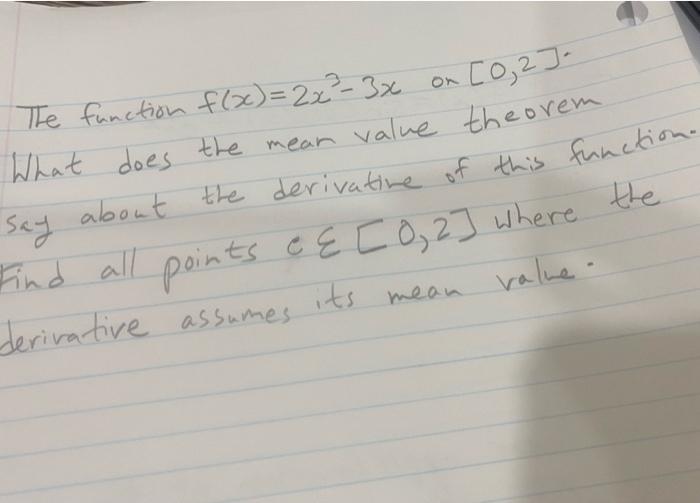 The function f(x)=2x³-3x on [0,2].
What does the mean value theorem
say about the derivative of this function.
Find all points c ∈ [0,2] where the
derivative assumes its mean value.